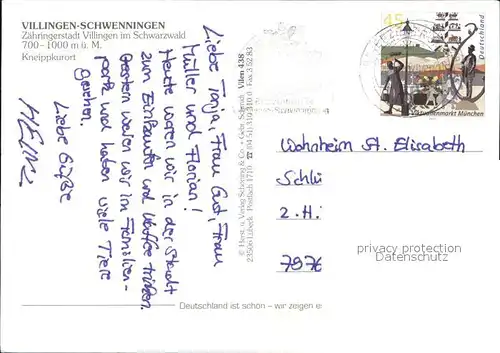 VILLINGEN-SCHWENNINGEN
Zähringerstadt Villingen im Schwarzwald
700 – 1000 m ü. M.
Kneippkurort
Liebe Tonja, Frau Gut, Frau
Müller und Florian!
Heute waren wir in der Stadt
zum Einkaufen und Kaffee trinken.
Gestern waren wir im Familien-
park und haben viele Tiere
gesehen.
Liebe Grüße
HEINZ
© Herst. u. Verlag Schöning & Co. + Gebr. Schmidt
23506 Lübeck · Postfach 1710 · ☎ (0451) 3 10 31 0 · Fax 3 62 83
Villen 438
45
Deutschland
Viktualienmarkt München
Wohnheim St. Elisabeth
Schlü
2. H.
7876
privacy protection
Datenschutz
Deutschland ist schön – wir zeigen e